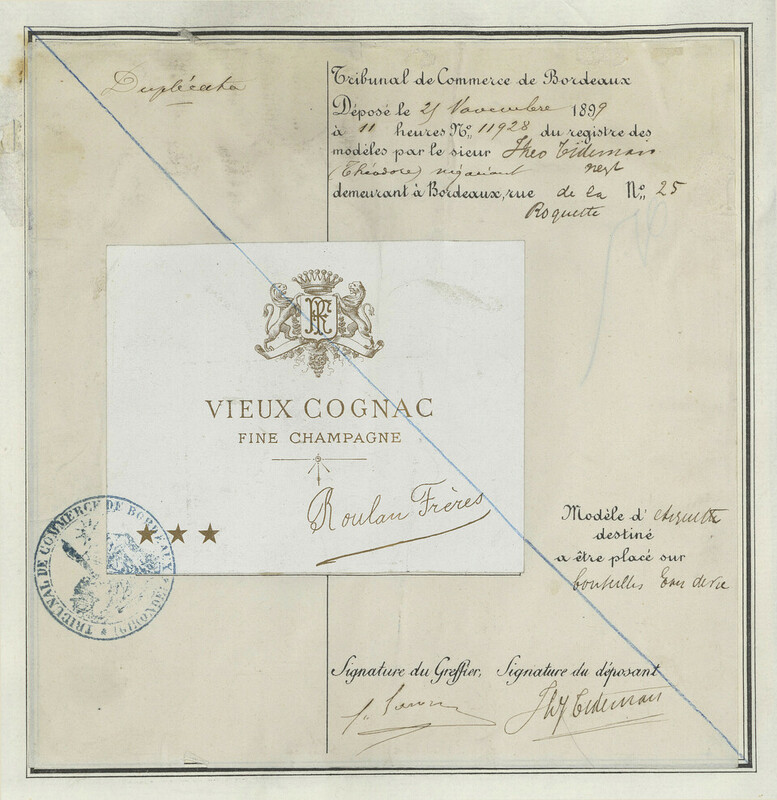 Duplicata
Tribunal de Commerce de Bordeaux
Déposé le 25 Novembre 1899
à 11 heures No. 11928 du registre des
modèles par le sieur Theo Tideman
(Théodore) négociant negt
demeurant à Bordeaux, rue de la No. 25
Roquette
VIEUX COGNAC
FINE CHAMPAGNE
Roulan Frères
TRIBUNAL DE COMMERCE DE BORDEAUX
Modèle d' étiquette
destiné
a être placé sur
bouteilles Eau de vie
Signature du Greffier, Signature du déposant
Tideman